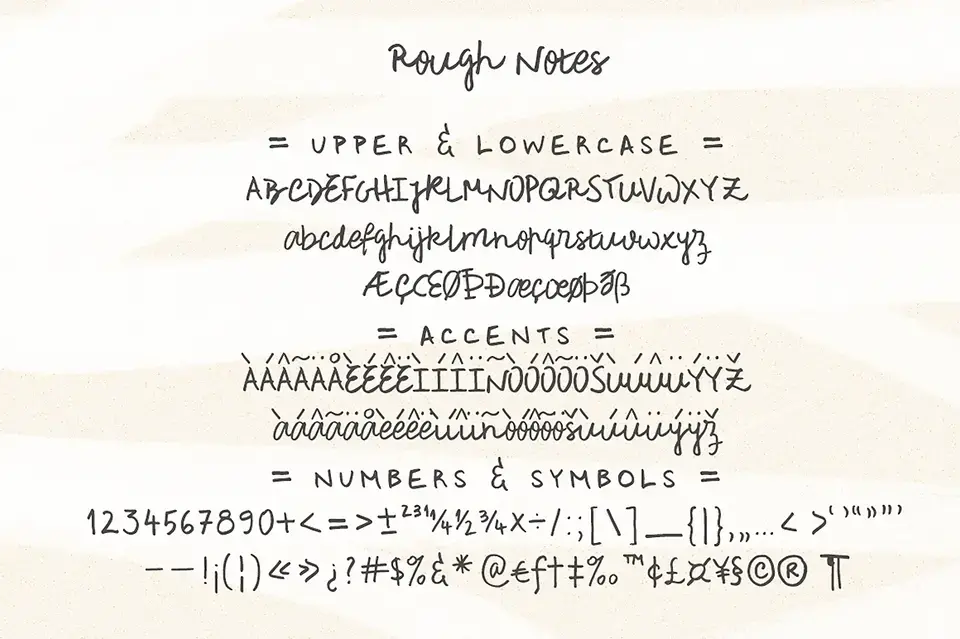 Rough Notes
= UPPER & LOWERCASE =
ABCDEFGHIJKLMNOPQRSTUVWXYZ
abcdefghijklmnopqrstuvwxyz
ÆÇŒØÞÐæçœøþðß
= ACCENTS =
ÀÁÂÃÄÅÈÉÊËÌÍÎÏÑÒÓÔÕÖŠÙÚÛÜÝŸŽ
àáâãäåèéêëìíîïñòóôõöšùúûüýÿž
= NUMBERS & SYMBOLS =
1234567890+<=>±²³¹¼½¾×÷/:;[\]_{|},„…‹›‘’“”"'
–—!¡(¦)«»¿?#$%&*@€ƒ†‡‰™¢£¤¥§©® ¶